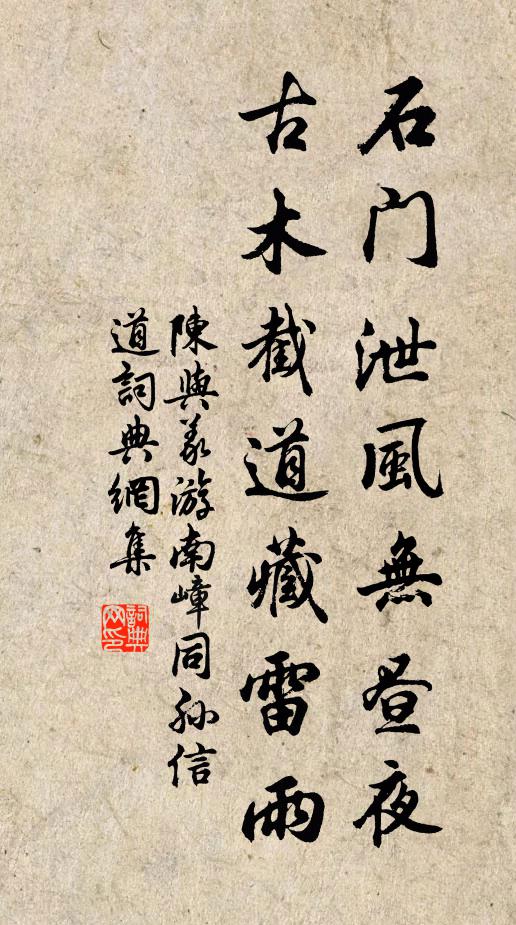 石门泄風無昼夜
古木截道藏雷雨
陳與義游南嶂同孙信
道詞典網集
詞典
网印